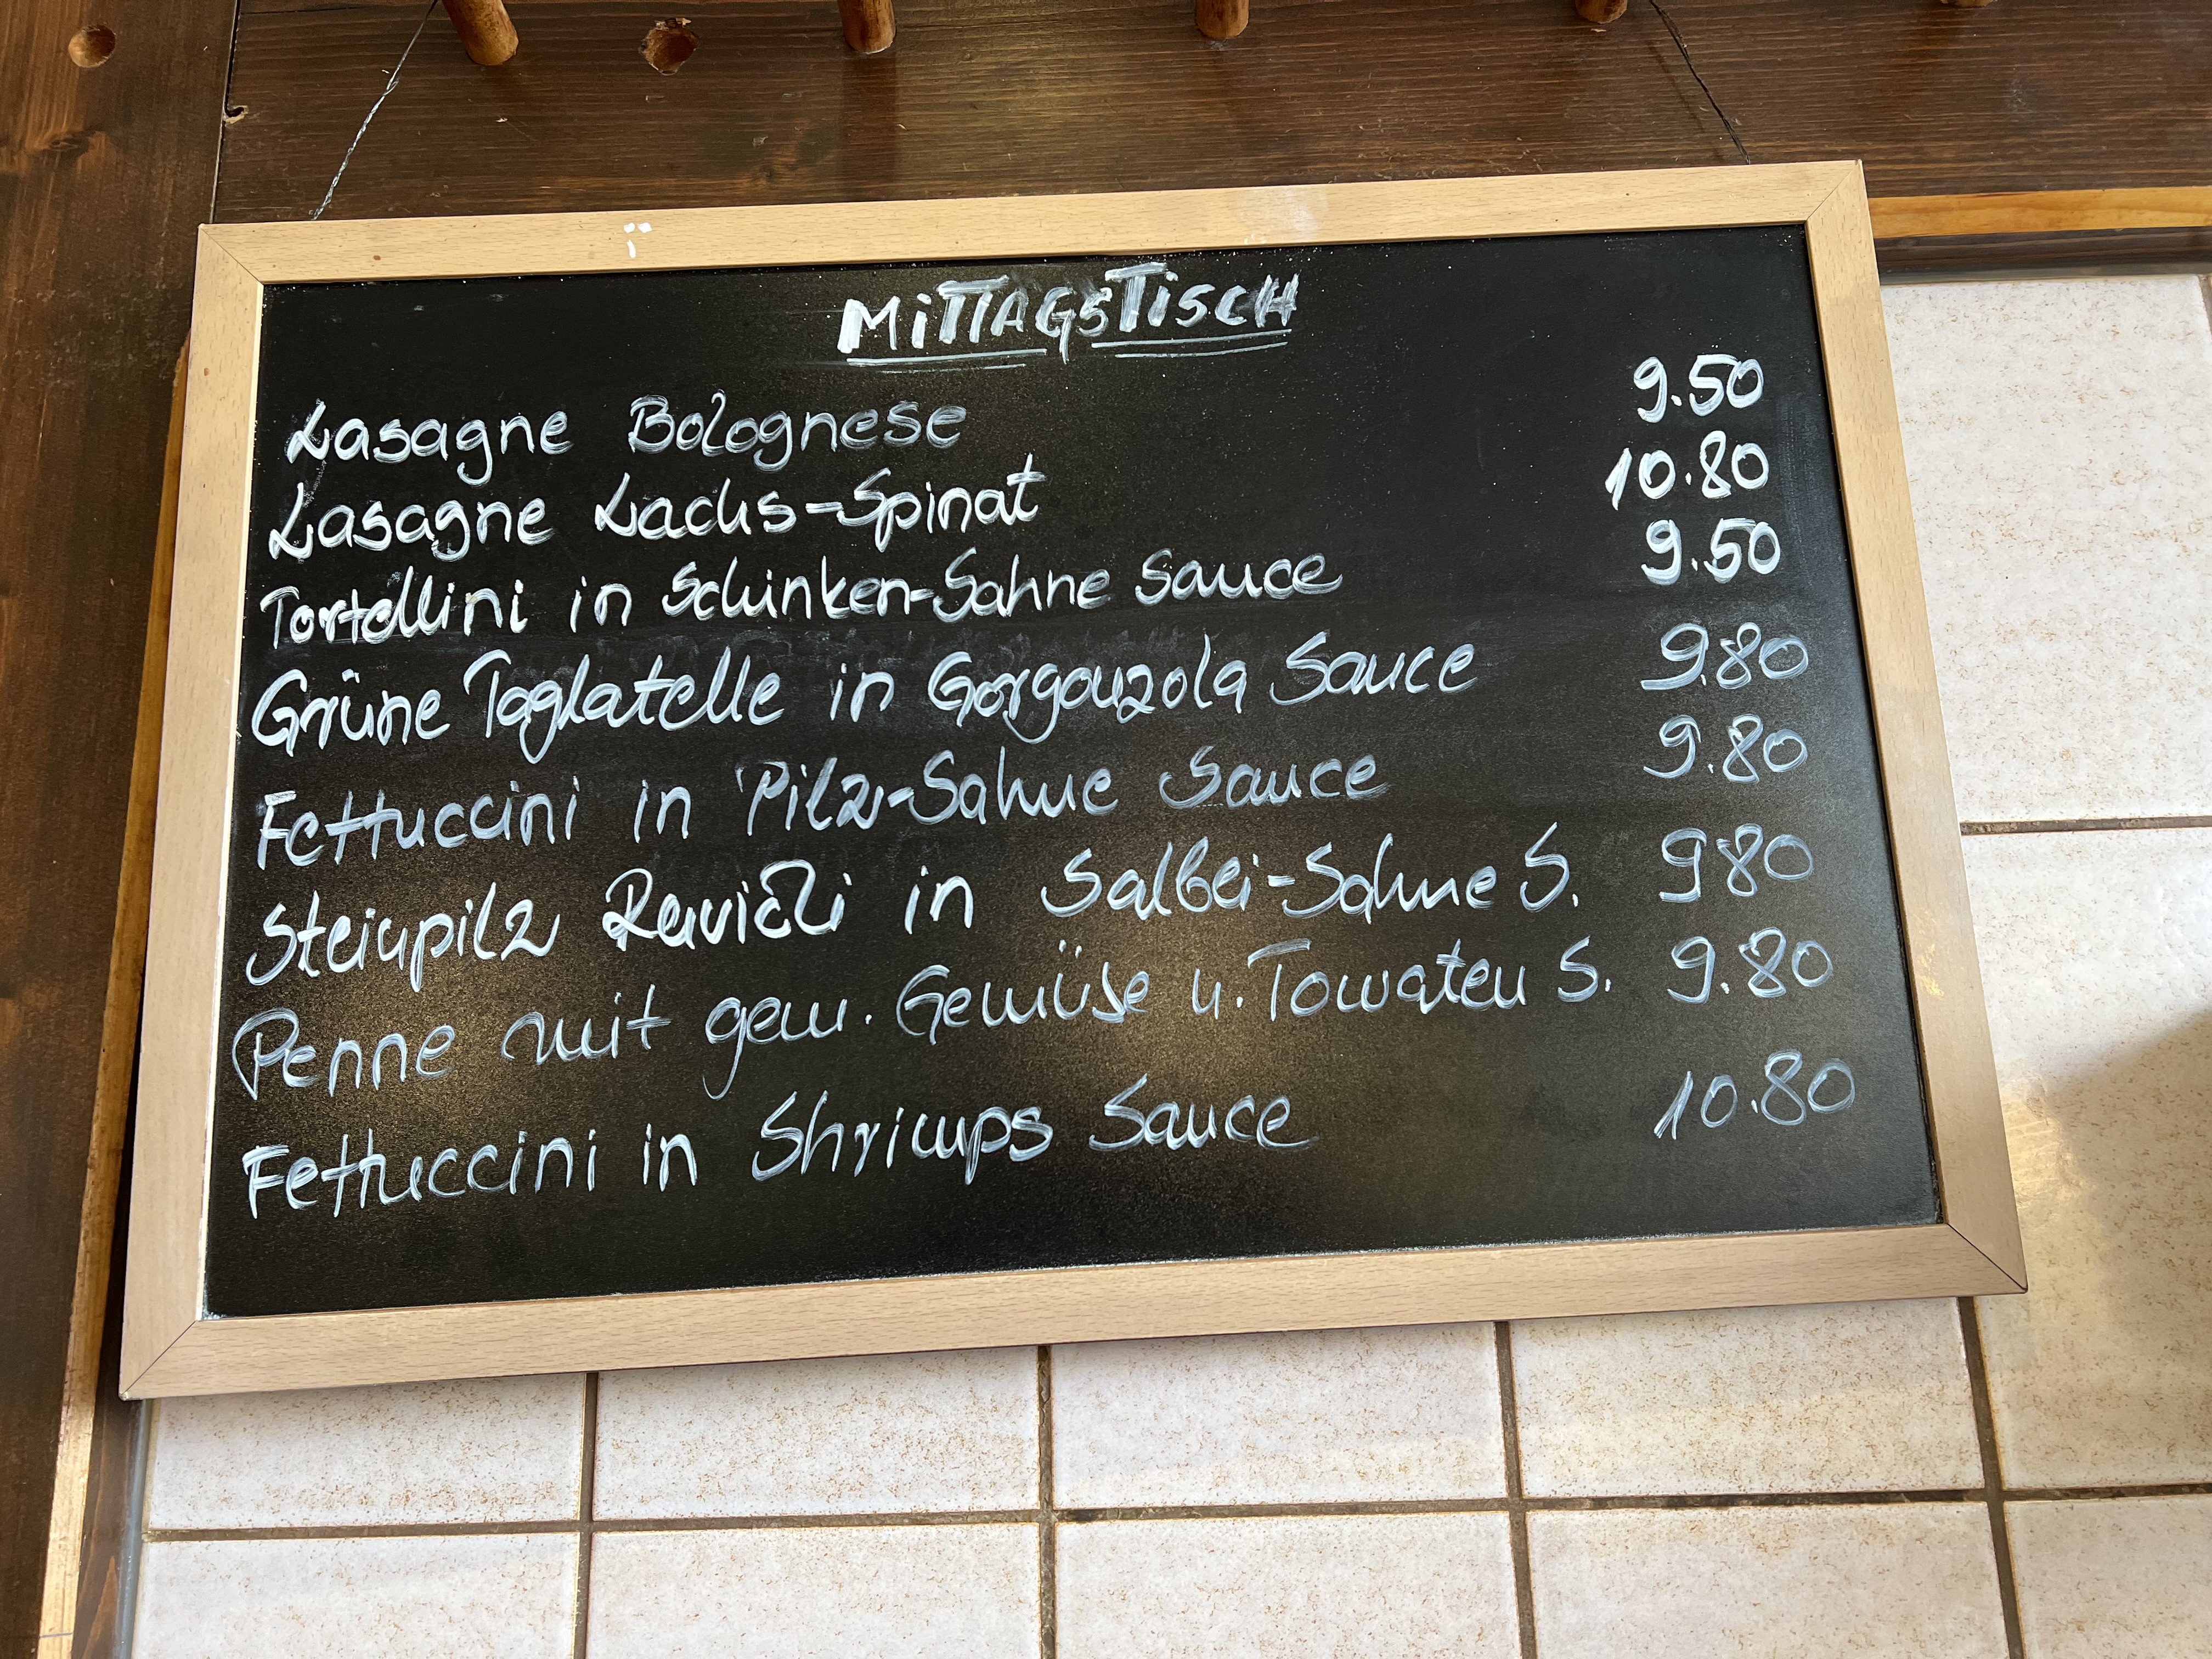 MITTAGSTISCH
Lasagne Bolognese 9.50
Lasagne Lachs-Spinat 10.80
Tortellini in Schinken-Sahne Sauce 9.50
Grüne Taglatelle in Gorgonzola Sauce 9.80
Fettuccini in Pilz-Sahne Sauce 9.80
Steinpilz Ravioli in Salbei-Sahne S. 980
Penne mit gem. Gemüse u. Tomaten S. 9.80
Fettuccini in Shrimps Sauce 10.80